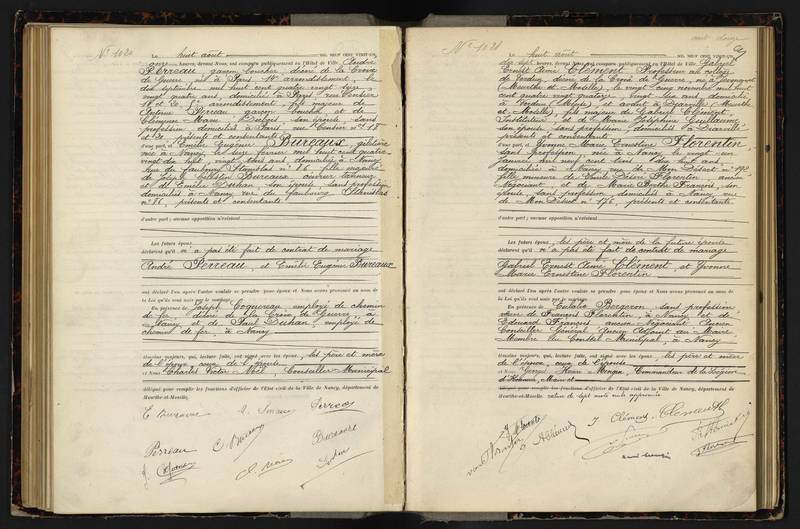 N° 1020
Le huit août mil neuf cent vingt-un,
onze heures, devant Nous, ont comparu publiquement en l'Hôtel de Ville, André
Perreau garçon boucher, décoré de la Croix
de Guerre, né à Paris 14e arrondissement, le
dix septembre mil huit cent quatre vingt seize,
vingt quatre ans, domicilié à Paris rue Censier
18 et 20, 5e arrondissement, fils majeur de
Antoine Perreau garçon boucher, et de
Clémence Marie Dubois son épouse sans
profession, domiciliés à Paris rue Censier nos 18
et 20, présents et consentants
d'une part, et Emélie Eugénie Bureaux, giletière
née à Nancy, le seize février mil huit cent quatre
vingt dix huit, vingt trois ans, domiciliée à Nancy
rue du faubourg Stanislas n° 86 fille majeure
de Joseph Célestin Bureaux ouvrier tanneur
et de Emélie Duhan son épouse sans profession
domiciliés à Nancy rue du faubourg Stanislas
n° 86, présents et consentants
d'autre part ; aucune opposition n'existant
Les futurs époux
déclarent qu'il n'a pas été fait de contrat de mariage
André Perreau, et Emélie Eugénie Bureaux
ont déclaré l'un après l'autre vouloir se prendre pour époux et Nous avons prononcé au nom de
la Loi qu'ils sont unis par le mariage.
En présence de Joseph Coquereau employé de chemin
de fer, décoré de la Croix de Guerre, à
Nancy et de Paul Duhan, employé de
chemin de fer, à Nancy
témoins majeurs, qui, lecture faite, ont signé avec les époux, les père et mère
de l'époux, ceux de l'épouse
et Nous Charles Victor Noël, Conseiller Municipal
délégué pour remplir les fonctions d'officier de l'Etat civil de la Ville de Nancy, département de
Meurthe-et-Moselle,
E Bureaux
Perreau
Perreau
Bureaux
N° 1021
Le huit août mil neuf cent vingt-un,
dix sept heures, devant Nous, ont comparu publiquement en l'Hôtel de Ville, Gabriel
Ernest Aimé Clément Professeur au collège
de Verdun, décoré de la Croix de Guerre, né à
(Meurthe et Moselle), le vingt cinq novembre mil huit
cent quatre vingt quatorze, vingt six ans, domicilié
à Verdun (Meuse), et avant à Deuxville (Meurthe
et Moselle), fils majeur de Gabriel Clément,
Instituteur et de Marie Joséphine Guillaume
son épouse sans profession, domiciliés à Deuxville
présents et consentants
d'une part, et Yvonne Marie Ernestine Florentin
sans profession née à Nancy, le vingt un
janvier mil neuf cent trois, dix huit ans,
domiciliée à Nancy rue de Mon Désert n° 172
fille mineure de Emile Désiré Florentin
Négociant, et de Marie son
épouse sans profession, domiciliés à Nancy rue
de Mon Désert n° 172, présents et consentants
d'autre part ; aucune opposition n'existant
Les futurs époux, les père et mère de la future épouse
déclarent qu'il n'a pas été fait de contrat de mariage
Gabriel Ernest Aimé Clément, et Yvonne
Marie Ernestine Florentin
ont déclaré l'un après l'autre vouloir se prendre pour époux et Nous avons prononcé au nom de
la Loi qu'ils sont unis par le mariage.
En présence de Eulalie Bergeron sans profession
veuve de François Florentin, à Nancy et de
Edouard François ancien Négociant Ancien
Conseiller Général Ancien Adjoint au Maire
Membre du Conseil Municipal, à Nancy
témoins majeurs, qui, lecture faite, ont signé avec les époux, les père et mère
de l'époux, ceux de l'épouse
et Nous Georges Henri Mengin, Commandeur de la Légion
d'Honneur, Maire
délégué pour remplir les fonctions d'officier de l'Etat civil de la Ville de Nancy, département de
Meurthe-et-Moselle.
Clément
Clément